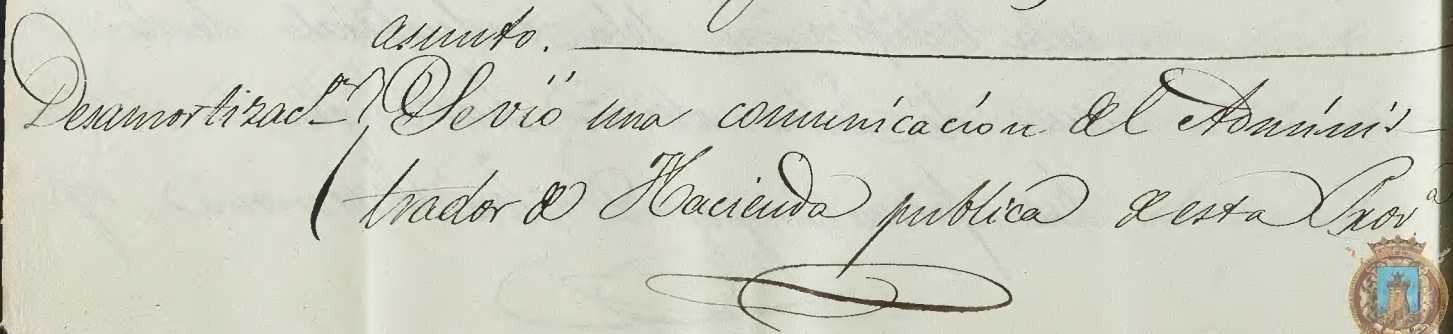 asunto.
Desamortizac.ⁿ Se vió una comunicacion del Adminis-
trador de Hacienda publica de esta Prov.ª